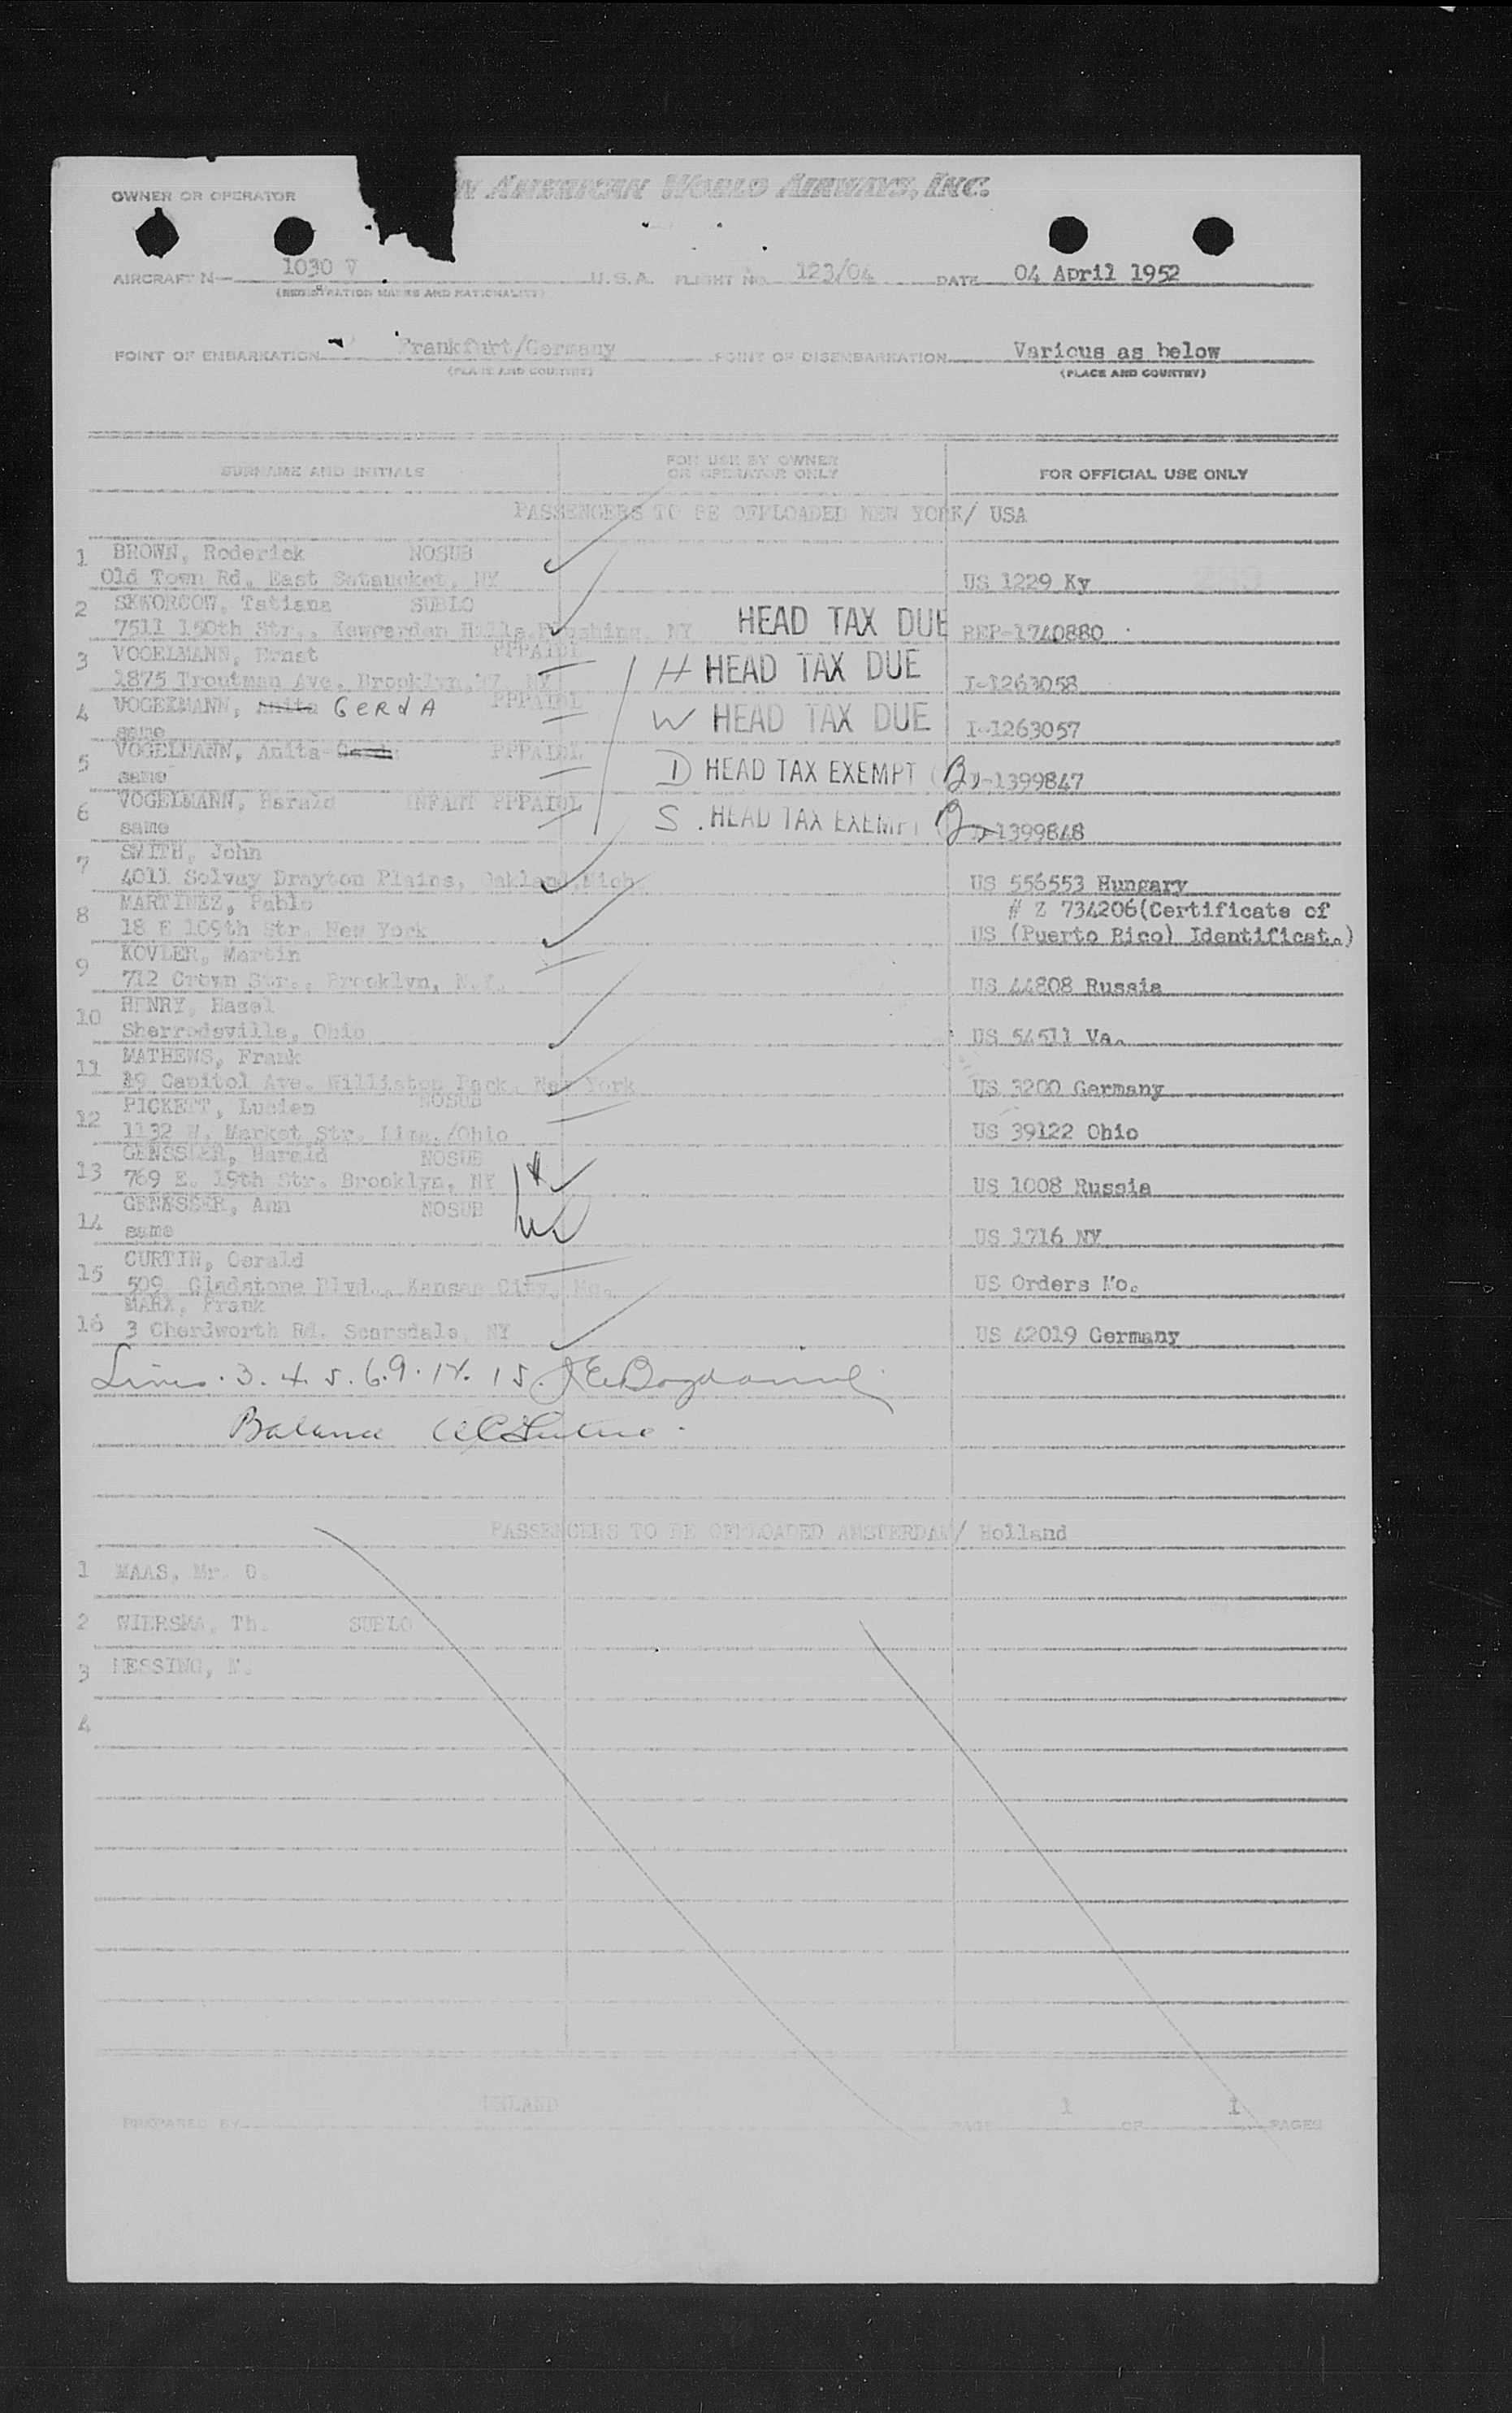 OWNER OR OPERATOR N AMERICAN WORLD AIRWAYS, INC.
AIRCRAFT N— 1030 V U.S.A. FLIGHT NO. 123/04 DATE 04 April 1952
(REGISTRATION MARKS AND NATIONALITY)
POINT OF EMBARKATION Frankfurt/Germany POINT OF DISEMBARKATION Various as below
(PLACE AND COUNTRY) (PLACE AND COUNTRY)
SURNAME AND INITIALS FOR USE BY OWNER OR OPERATOR ONLY FOR OFFICIAL USE ONLY
PASSENGERS TO BE OFFLOADED NEW YORK/ USA
1 BROWN, Roderick NOSUB
Old Town Rd. East Sataucket, NY US 1229 Ky
2 SKWORCOW, Tatiana SUBLO
7511 150th Str., Kewgarden Hills, Flushing, NY HEAD TAX DUE REP-1740880
3 VOGELMANN, Ernst PPPAIDL
1875 Troutman Ave. Brooklyn, NY H HEAD TAX DUE I-1263058
4 VOGELMANN, Anita GERdA PPPAIDL
same W HEAD TAX DUE I-1263057
5 VOGELMANN, Anita PPPAIDL
same D HEAD TAX EXEMPT -1399847
6 VOGELMANN, Harald INFANT PPPAIDL
same S. HEAD TAX EXEMPT -1399848
7 SMITH, John
4011 Solvay Drayton Plains, Oakland, Mich US 556553 Hungary
8 MARTINEZ, Pablo # Z 734206(Certificate of
18 E 109th Str. New York US (Puerto Rico) Identificat.)
9 KOVLER, Martin
712 Crown Str., Brooklyn, N.Y. US 44808 Russia
10 HENRY, Hasel
Sherrodsville, Ohio US 54511 Va.
11 MATHEWS, Frank
19 Capitol Ave. Williston Park, New York US 3200 Germany
12 PICKETT, Lucien NOSUB
1132 W. Market Str. Lima./Ohio US 39122 Ohio
13 GENSSLER, Harald NOSUB H
769 E. 19th Str. Brooklyn, NY US 1008 Russia
14 GENESSER, Ann NOSUB W
same US 1716 NY
15 CURTIN, Gerald
509 Gladstone Blvd., Kansas City, Mo. US Orders Mo.
16 MARX, Frank
3 Cherdworth Rd. Scarsdale, NY US 42019 Germany
Lines . 3. 4. 5. 6. 9. 12. 15.
Balance
PASSENGERS TO BE OFFLOADED AMSTERDAM/ Holland
1 MAAS, Mr. O.
2 WIERSMA, Th. SUBLO
3 MESSING, M.
4
PREPARED BY PAGE 1 OF 1 PAGES